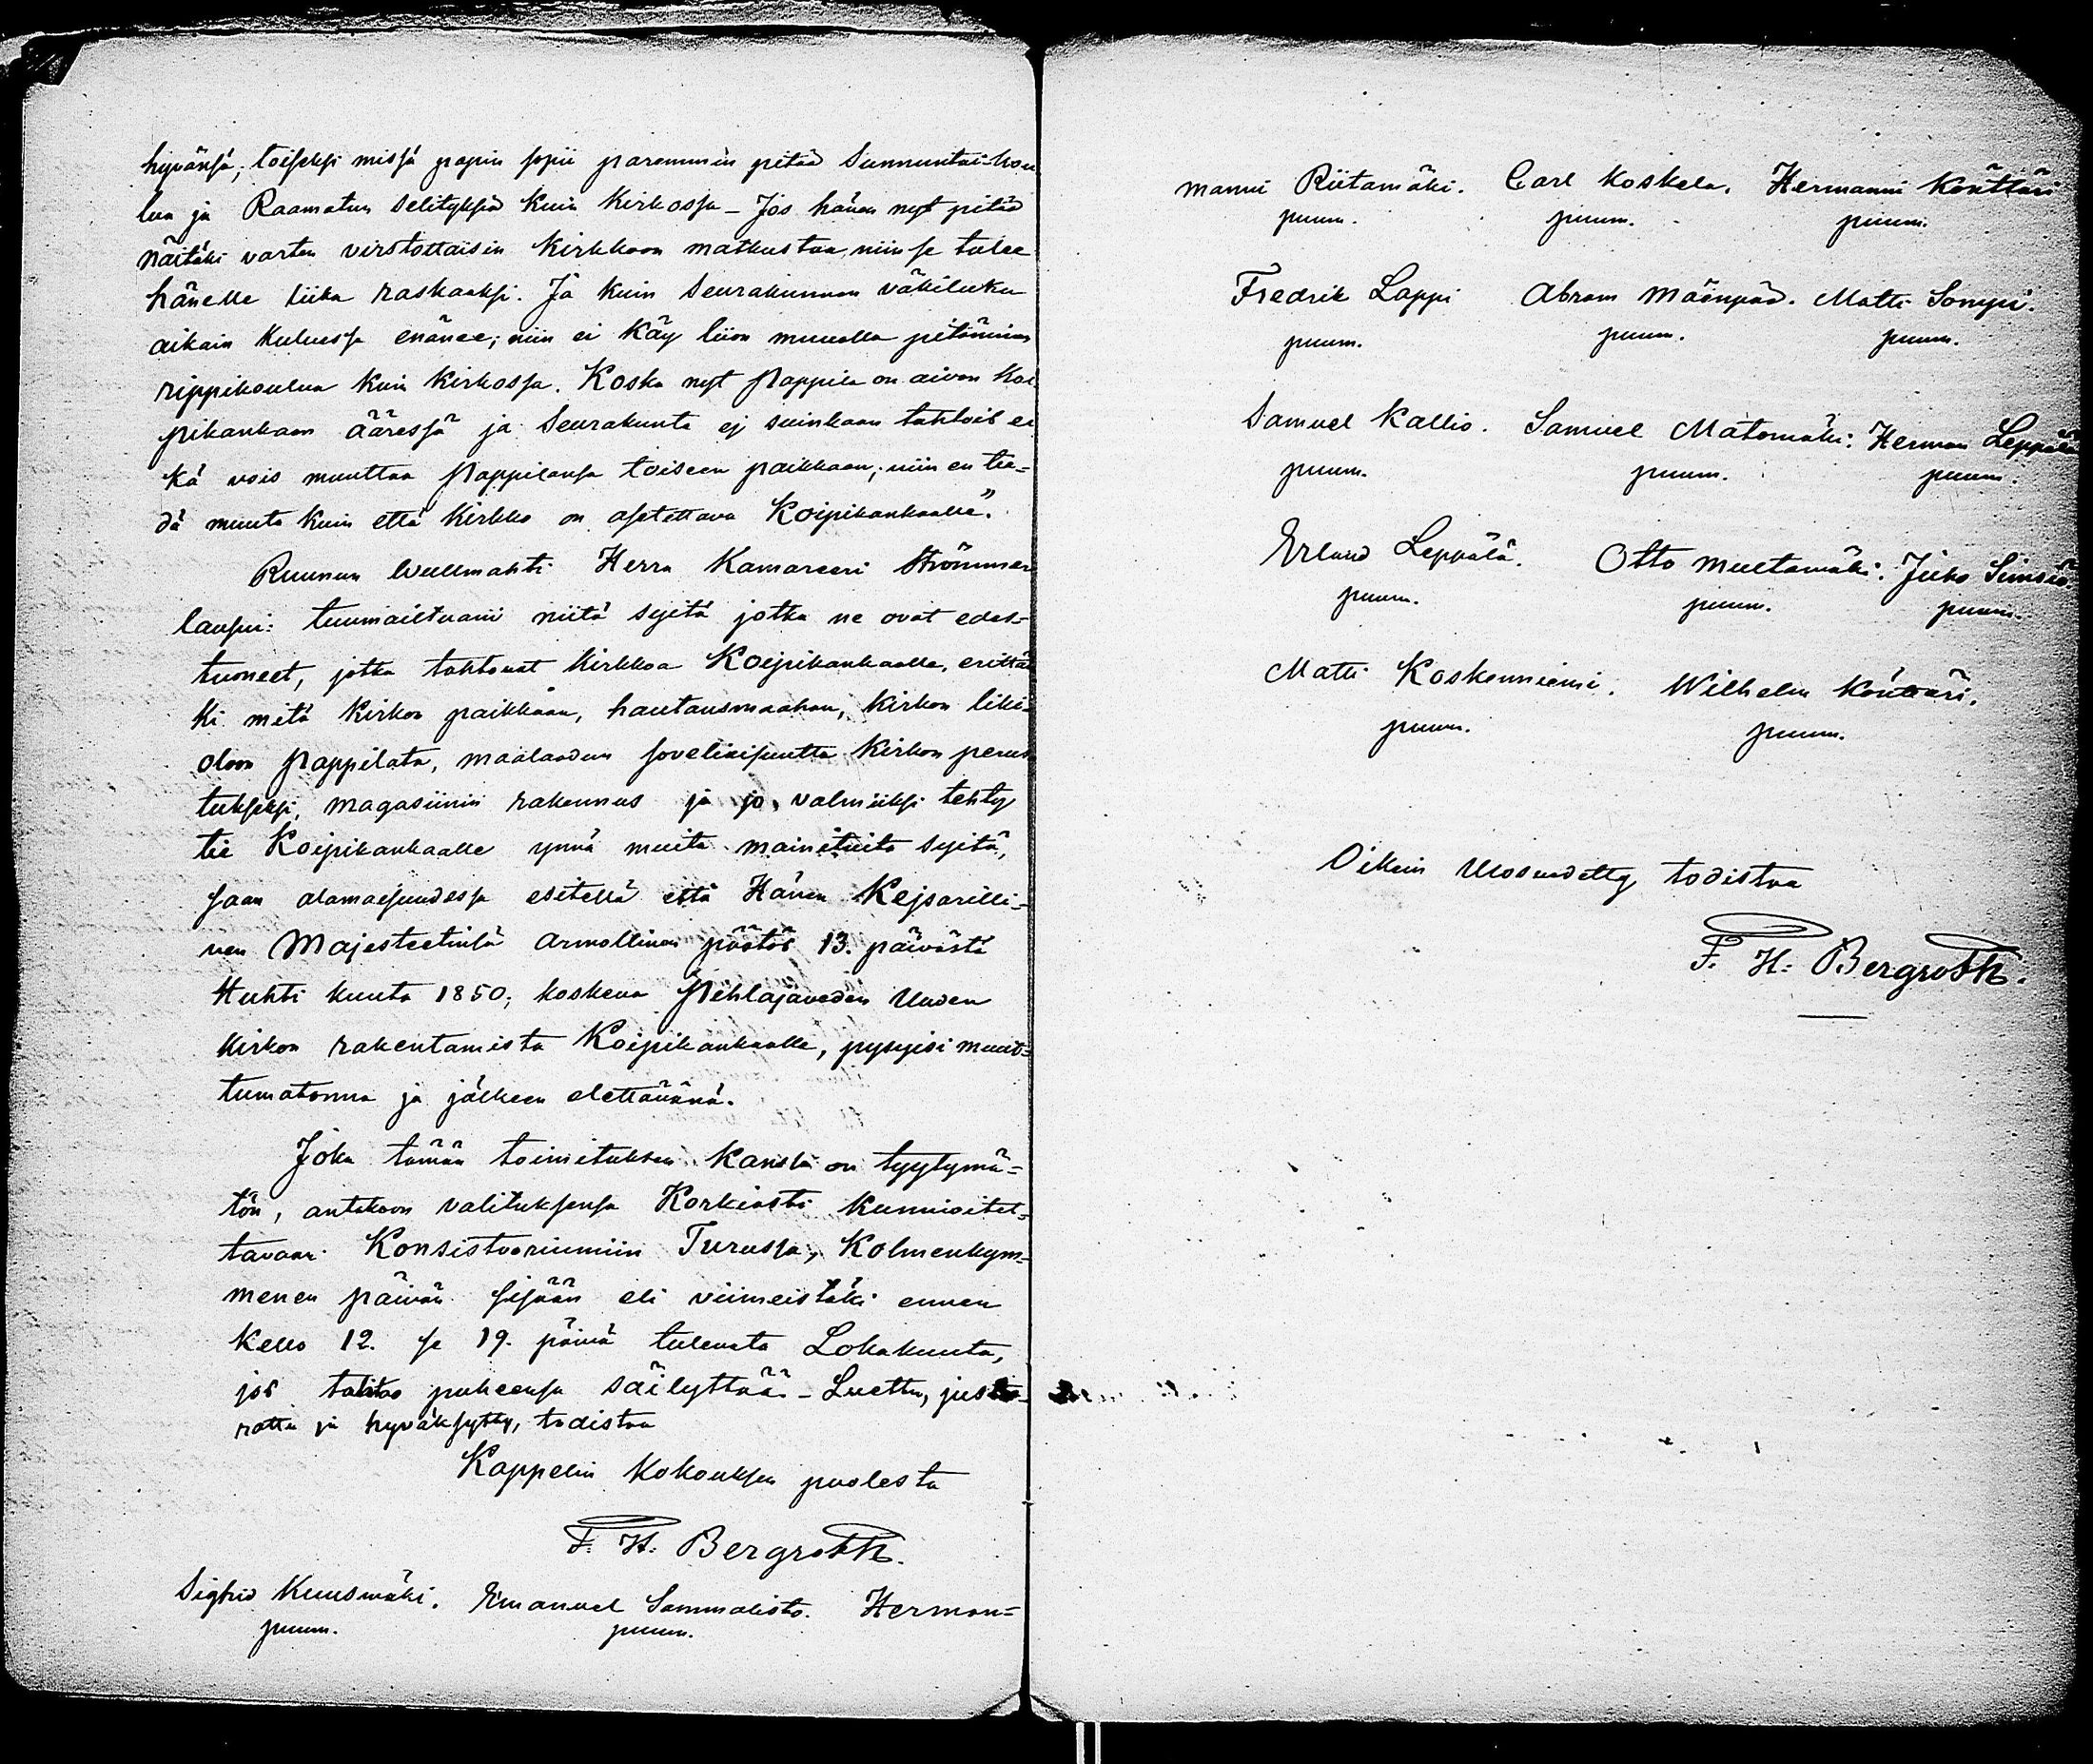 hyvänsä; toiseksi missä papin sopii paremmin pitää Sunnuntai-kou
lua ja Raamatun selityksiä kuin Kirkossa – Jos hänen nyt pitää
näitäki varten virstottaisin Kirkkoon matkustaa, niin se tulee
hänelle liika raskaaksi. Ja kuin Seurakunnan väkiluku
aikain kuluessa enänee; niin ei käy liion muualla pitäminen
rippikoulua kuin Kirkossa. Koska nyt Pappila on aivan Koi
pikankaan ääressä ja Seurakunta ej suinkaan tahtois ei
kä vois muuttaa Pappilansa toiseen paikkaan; niin en tie=
dä muuta kuin että Kirkko on asetettava Koipikankaalle".
Ruunun Wullmahti Herra Kamareeri Strömmer
lausui: tuumailtuani niitä syitä jotka ne ovat edes=
tuoneet, jotka tahtovat Kirkkoa Koipikankaalle, erittä
ki mitä Kirkon paikkaan, hautausmaahan, Kirkon liki=
oloon Pappilata, maalaadun soveliaisuutta Kirkon perus
tukseksi, magasiinin rakennus ja jo valmiiksi tehty
tie Koipikankaalle ynnä muita mainituita syitä,
saan alamaisuudessa esitellä että Hänen Kejsarilli=
nen Majesteetinsä armollinen päätös 13. päivästä
Huhti kuuta 1850, koskeva Pihlajaveden Uuden
Kirkon rakentamista Koipikankaalle, pysyisi muut=
tumatonna ja jälkeen elettävänä.
Joka tämän toimituksen kanssa on tyytymä=
tön, antakoon valituksensa Korkiasti kunnioitet=
tavaan Konsistooriumiin Turussa, Kolmenkym=
menen päivän sisään eli viimeistäki ennen
Kello 12. se 19. päivä tulevata Lokakuuta,
jos tahtoo puheensa säilyttää – Luettu, juste
rattu ja hyväksytty, todistaa
Kappelin Kokouksen puolesta
F. H. Bergroth.
Sigfrid Kuusmäki. Emanuel Sammalisto. Herman=
puum. puum.
manni Riitamäki. Carl Koskela. Hermanni Könttäri
puum. puum. puum.
Fredrik Lappi Abram Mäenpää. Matti Sompi.
puum. puum. puum.
Samuel Kallio. Samuel Matomäki. Herman Leppälä
puum. puum. puum.
Erland Leppälä. Otto Multamäki. Juho Simsiö
puum. puum. puum.
Matti Koskenniemi. Wilhelm Könttäri.
puum. puum.
Oikein Ulosvedetty todistaa
F. H. Bergroth.